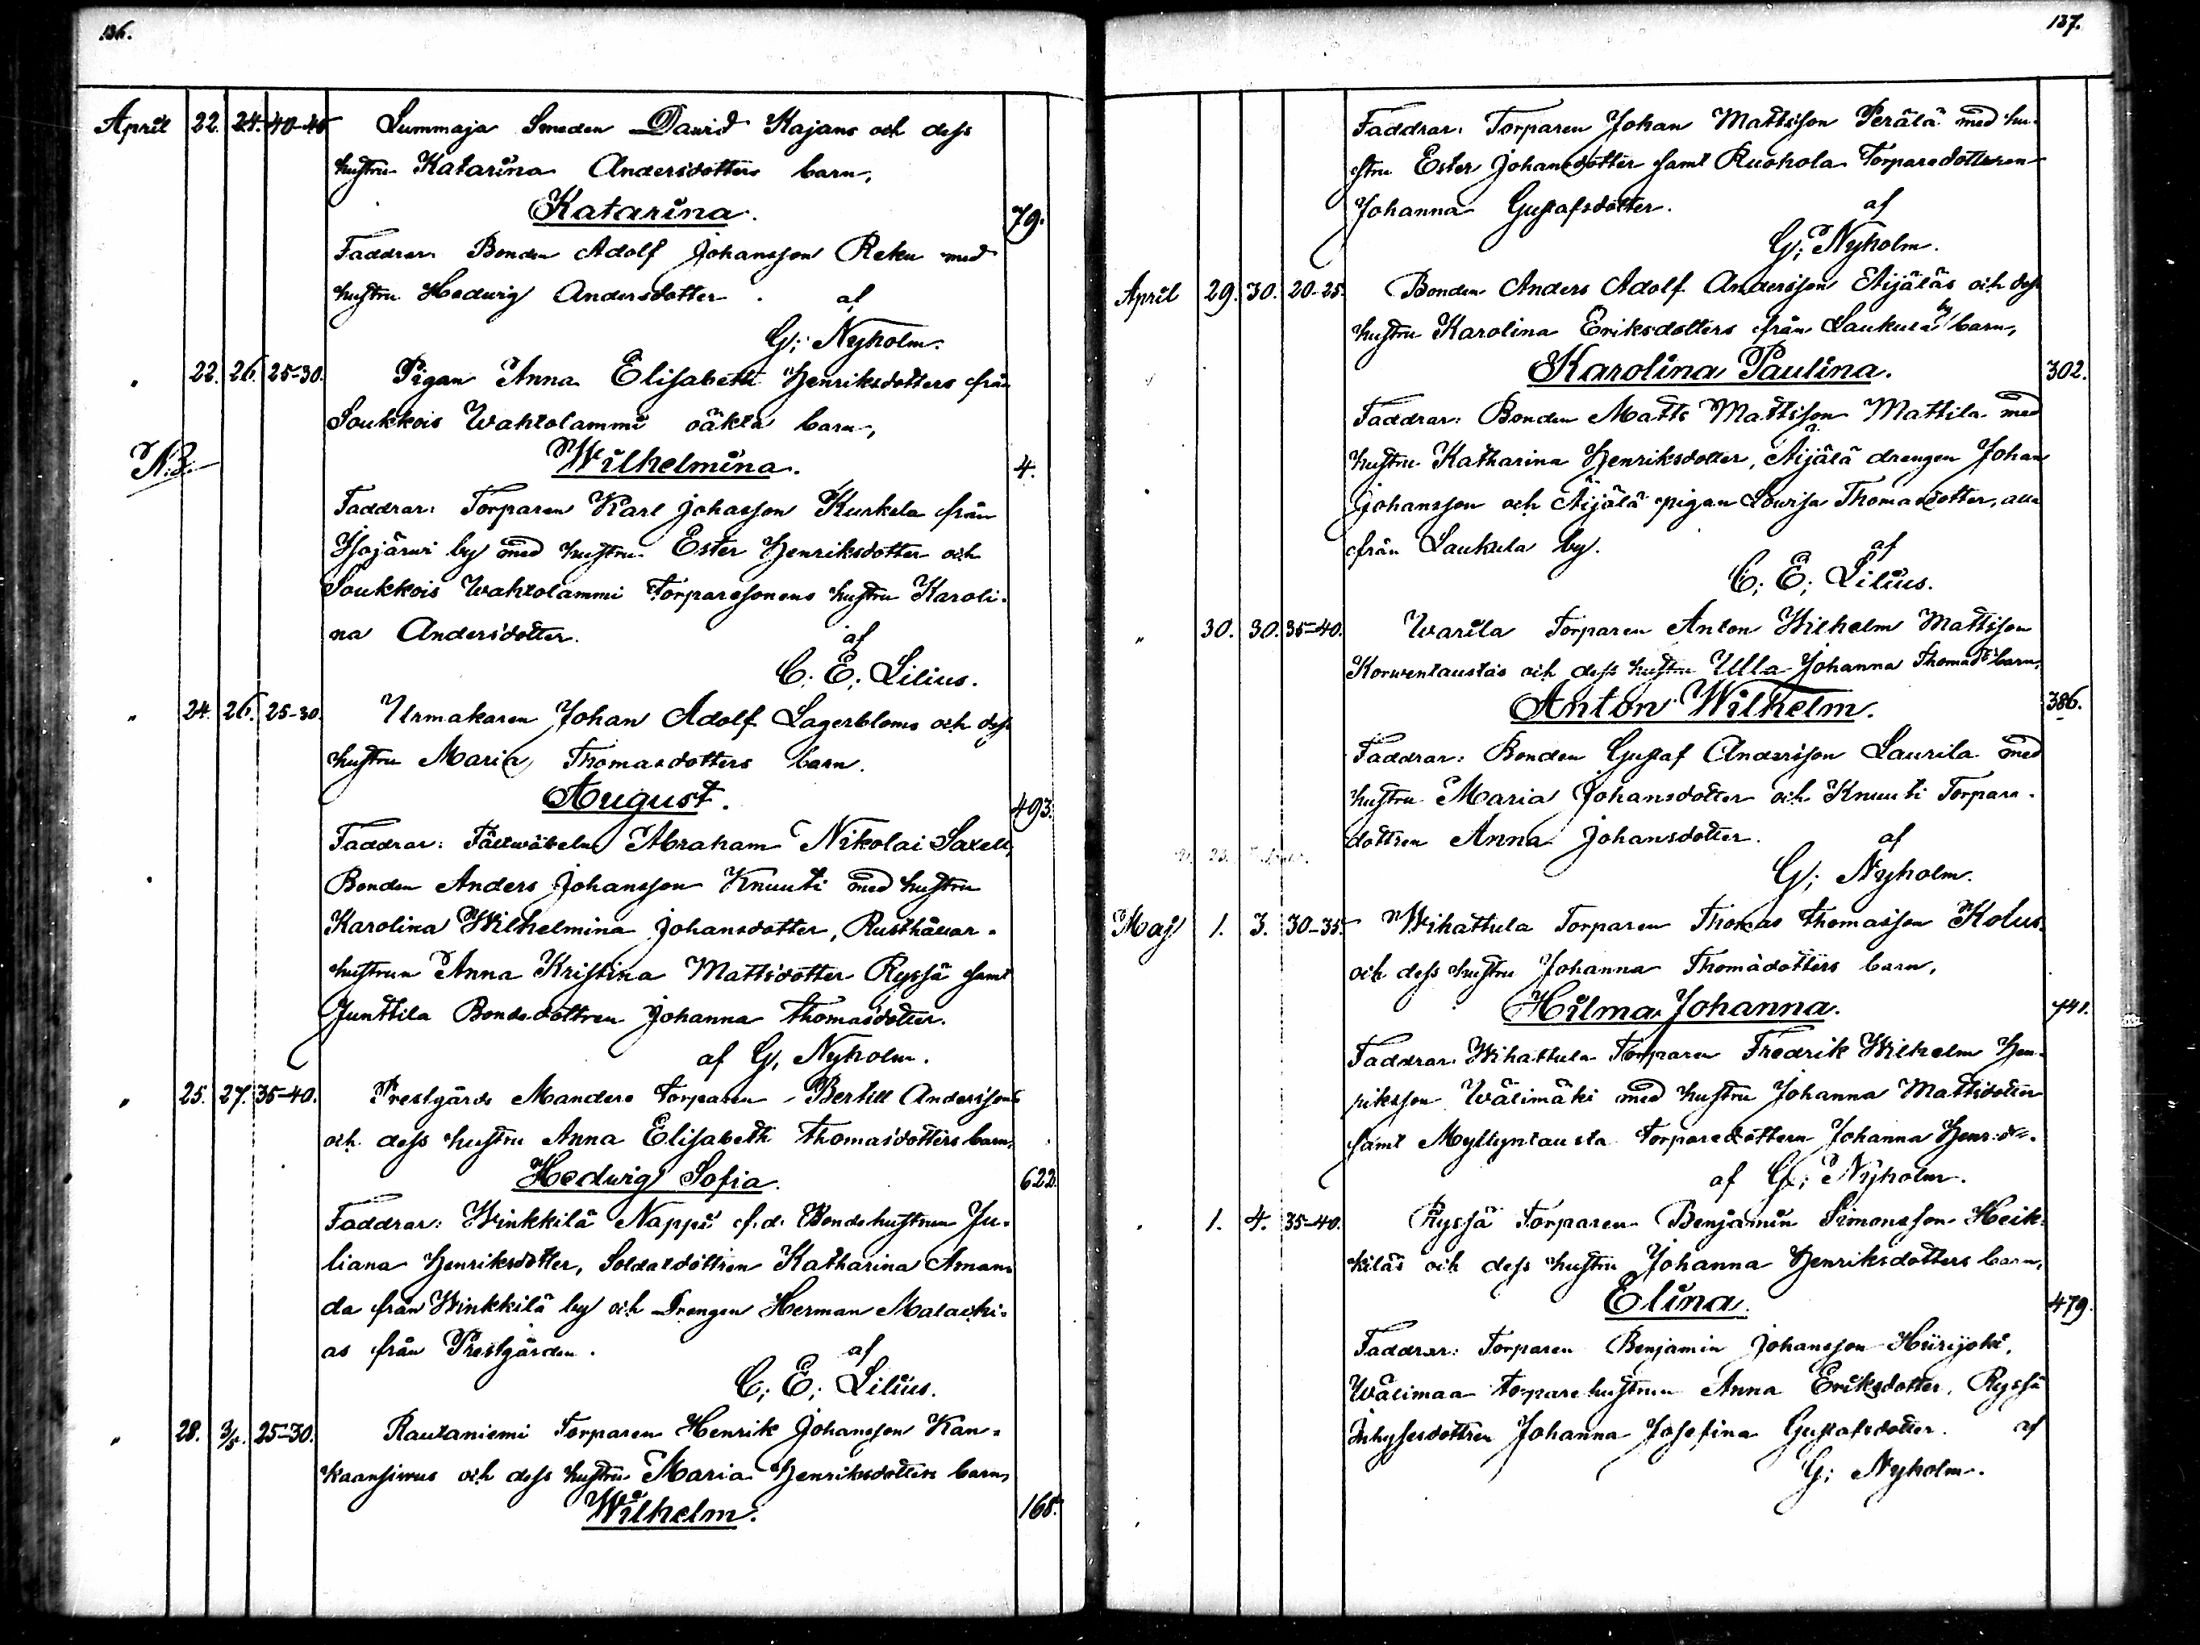 136.
April 22. 24. 40-45 Summaja Smeden David Kajans och dess
hustru Katarina Andersdotters barn,
Katarina. 79.
Faddrar: Bonden Adolf Johansson Reku med
hustru Hedwig Andersdotter. af
G; Nyholm.
" 22. 26. 25-30. Pigan Anna Elisabeth Henriksdotters från
Soukkois Wahtolammi oäkta barn,
N.B. Wilhelmina. 4.
Faddrar: Torparen Karl Johasson Kurkela från
Isojärwi by med hustru Ester Henriksdotter och
Soukkois Wahtolammi Torparesonens hustru Karoli-
na Andersdotter. af
C. E; Lilius.
" 24. 26. 25-30. Urmakaren Johan Adolf Lagerbloms och dess
hustru Maria Thomasdotters barn.
August. 493.
Faddrar: Fältwäbeln Abraham Nikolai Saxell,
Bonden Anders Johansson Knuuti med hustru
Karolina Wilhelmina Johansdotter, Rusthållar-
hustrun Anna Kristina Mattsdotter Ryssä samt
Junttila Bondedottren Johanna Thomasdotter.
af G; Nyholm.
" 25. 27. 35-40. Prestgårds Manders torparen Bertill Anderssons
och dess hustru Anna Elisabeth Thomasdotters barn,
Hedwig Sofia. 622.
Faddrar: Winkkilä Nappi f.d. Bondehustrun Ju-
liana Henriksdotter, Soldatdottren Katharina Aman-
da från Winkkilä by och Drengen Herman Malachi-
as från Prestgården. af
C; E; Lilius.
" 28. 3/5. 25-30. Rautaniemi Torparen Henrik Johansson Kan-
kaansiwus och dess hustru Maria Henriksdotters barn,
Wilhelm. 168.
137.
Faddrar: Torparen Johan Mattsson Perälä med hu-
stru Ester Johansdotter samt Ruohola Torparedotteren
Johanna Gustafsdotter. af
G; Nyholm.
April 29. 30. 20-25. Bonden Anders Adolf Andersson Äijäläs och dess
hustru Karolina Eriksdotters från Laukula by barn,
Karolina Paulina. 302.
Faddrar: Bonden Matts Mattsson Mattila med
hustru Katharina Henriksdotter, Äijälä drengen Johan
Johansson och Äijälä pigan Lowisa Thomasdotter, alla
från Laukula by. af
C; E; Lilius.
" 30. 30. 35-40. Warila Torparen Anton Wilhelm Mattsson
Korwentaustas och dess hustru Ulla Johanna Thomasd:s barn,
Anton Wilhelm. 386.
Faddrar: Bonden Gustaf Andersson Laurila med
hustru Maria Johansdotter och Knuuti Torpare-
dottren Anna Johansdotter. af
G; Nyholm.
Maj 1. 3. 30-35. Wihattula Torparen Thomas Thomasson Kolus
och dess hustru Johanna Thomadotters barn,
Hilma Johanna. 741.
Faddrar: Wihattula Torparen Fredrik Wilhelm Hen-
riksson Wälimäki med hustru Johanna Mattsdotter
samt Myllyntausta torparedottern Johanna Henr:dr.
af G; Nyholm.
" 1. 4. 35-40. Ryssä Torparen Benjamin Simonsson Heik-
kiläs och dess hustru Johanna Henriksdotters barn,
Elina. 479.
Faddrar: Torparen Benjamin Johansson Hiirijoki,
Wälimaa torparehustrun Anna Eriksdotter, Ryssä
Inhysesdottren Johanna Josefina Gustafsdotter. af
G; Nyholm.